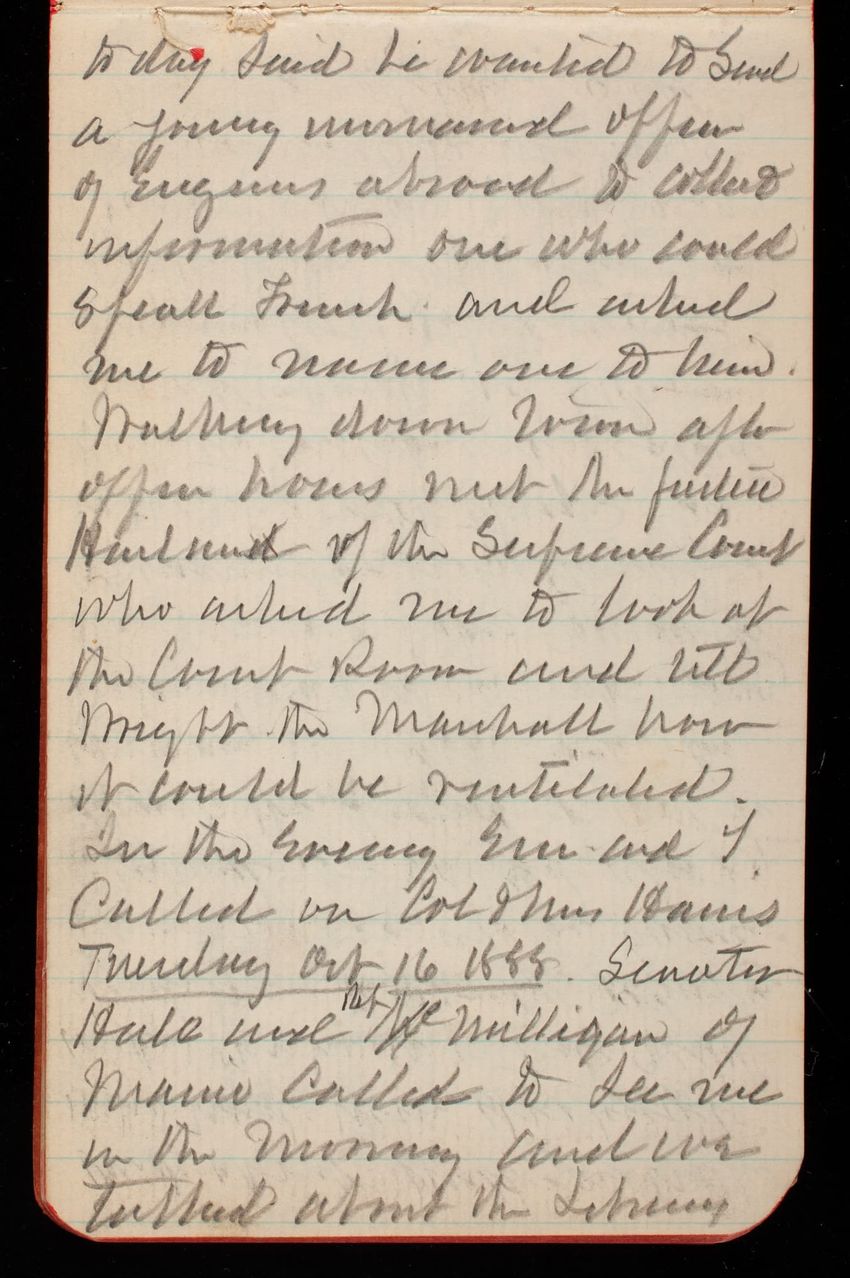 today said he wanted to send
a young unmarried officer
of Engineers abroad to collect
information one who could
speak French and asked
me to name one to him.
Walking down town after
office hours met the Justice
Harland of the Supreme Court
who asked me to look at
the Court Room and tell
Wright the Marshall how
it could be ventilated.
In the Evening Em and I
Called on Col & Mrs Harris
Tuesday Oct 16 1888. Senator
Hale and Rep Milligan of
Maine Called to see me
in the Morning and we
talked about the Library